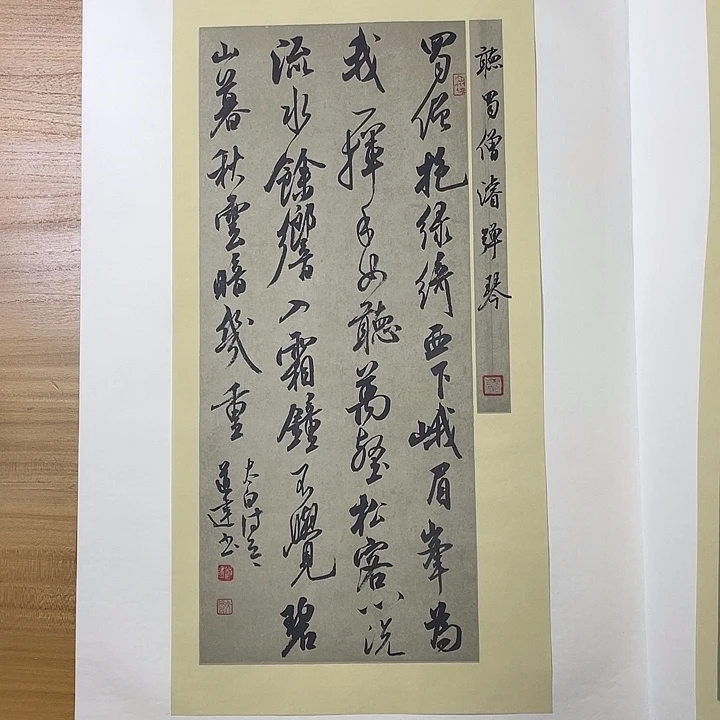 聽蜀僧濬彈琴
蜀僧抱綠綺西下峨眉峯為
我一揮手如聽萬壑松客心洗
流水餘響入霜鐘不覺碧
山暮秋雲暗幾重
太白詩
達书